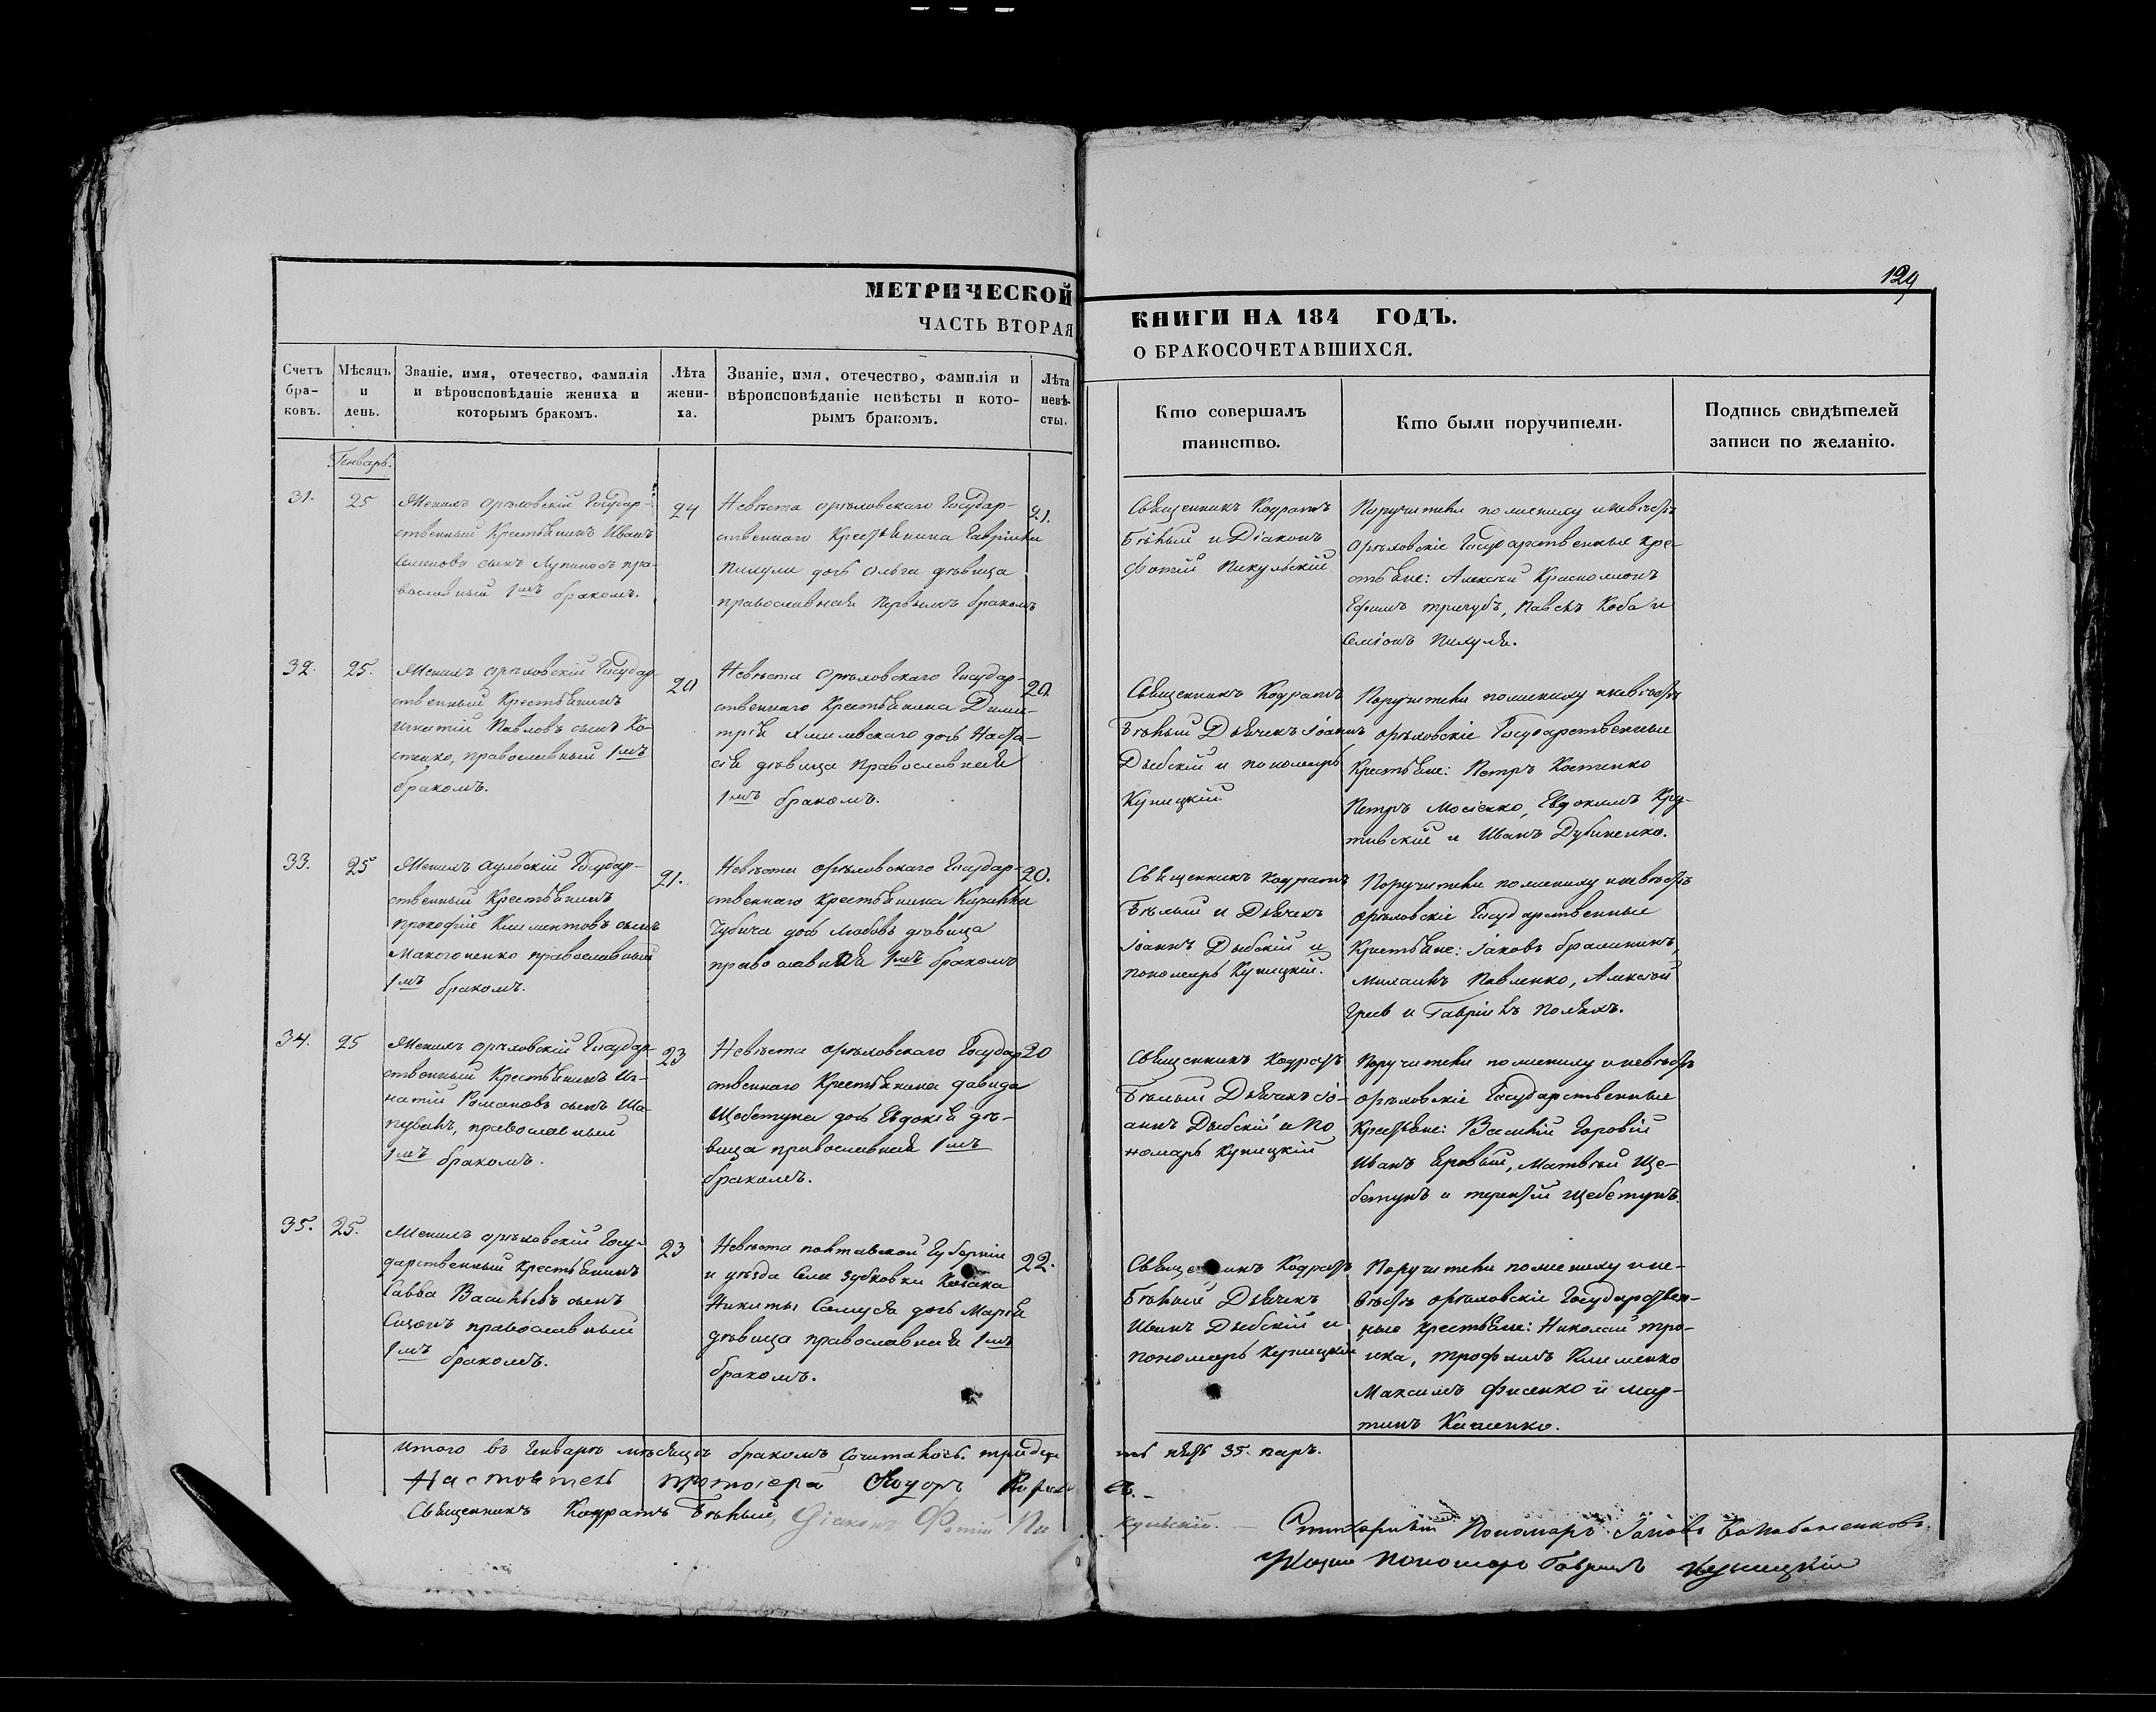 129
МЕТРИЧЕСКОЙ КНИГИ НА 184 ГОДЪ.
ЧАСТЬ ВТОРАЯ О БРАКОСОЧЕТАВШИХСЯ.
Счетъ бра-ковъ.
Мѣсяцъ и день.
Званіе, имя, отечество, фамилія
и вѣроисповѣданіе жениха и
которымъ бракомъ.
Лѣта жени-ха.
Званіе, имя, отечество, фамилія и
вѣроисповѣданіе невѣсты и кото-
рымъ бракомъ.
Лѣта невѣ-сты.
Кто совершалъ
таинство.
Кто были поручители.
Подпись свидѣтелей
записи по желанію.
Генварь.
31.
25
Женихъ орѣховскій Государ-
ственный Крестьянинъ Иванъ
Семеновъ сынъ пра-
вославный 1мъ бракомъ.
24
Невѣста орѣховскаго Государ-
ственнаго Крестьянина Гавріила
Пихули дочь Ольга дѣвица
православная Первымъ бракомъ
21.
Священникъ Кодратъ
Бѣлый и Діаконъ
Фотій Пикульскій
Поручители по жениху и невѣстѣ
орѣховскіе Государственные кре-
стьяне: Алексѣй
Ефимъ Тригубъ, Павелъ Коба и
Семіонъ Пихуля.
32.
25.
Женихъ орѣховскій Государ-
ственный Крестьянинъ
Игнатій Павловъ сынъ Ко-
стенко, православный 1мъ
бракомъ.
20
Невѣста орѣховскаго Государ-
ственнаго Крестьянина Дими-
трія Хмилевскаго дочь Наста-
сія дѣвица Православная
1мъ бракомъ.
20.
Священникъ Кодратъ
Бѣлый Дьячекъ Іоаннъ
Дыбскій и пономарь
Куницкій
Поручители по жениху и невѣстѣ
орѣховскіе Государственные
Крестьяне: Петръ Костенко
Петръ Мосіенко, Евдокимъ
и Иванъ Дубиненко.
33.
25
Женихъ аульскій Государ-
ственный Крестьянинъ
Прокофій Климентовъ сынъ
Макогоненко православный
1мъ бракомъ.
21.
Невѣста орѣховскаго Государ-
ственнаго Крестьянина Кирилла
Чубича дочь Любовь дѣвица
православная 1мъ бракомъ
20.
Священникъ Кодратъ
Бѣлый и Дьячекъ
Іоаннъ Дыбскій и
пономарь Куницкій.
Поручители по жениху и невѣстѣ
орѣховскіе Государственные
Крестьяне: Іаковъ
Михаилъ Павленко, Алексѣй
и Гавріилъ Поляхъ.
34.
25
Женихъ орѣховскій Государ-
ственный Крестьянинъ Иг-
натій Романовъ сынъ Ша-
пувалъ, православный
1мъ бракомъ.
23
Невѣста орѣховскаго Государ-
ственнаго Крестьянина Давида
Щебетуна дочь Евдокія дѣ-
вица православная 1мъ
бракомъ.
20
Священникъ Кодратъ
Бѣлый Дьячекъ Іо-
аннъ Дыбскій и По
номарь Куницкій
Поручители по жениху и невѣстѣ
орѣховскіе Государственные
Крестьяне: Василій
Иванъ Матвѣй Ще-
бетунъ и Терентій Щебетунъ.
35.
25.
Женихъ орѣховскій Госу-
дарственный Крестьянинъ
Савва Васильевъ сынъ
православный
1мъ бракомъ.
23
Невѣста полтавской Губерніи
и уѣзда Села Зубковки Козака
Никиты дочь Марія
дѣвица православная 1мъ
бракомъ.
22.
Священникъ Кодратъ
Бѣлый Дьячекъ
Иванъ Дыбскій и
пономарь Куницкій
Поручители по жениху и не-
вѣстѣ орѣховскіе Государствен-
ные крестьяне: Николай
Трофимъ Клименко
Максимъ Фисенко и Мар-
тинъ
Итого въ Генварѣ мѣсяцѣ бракомъ сочеталось тридца
ть пять 35. паръ.
Настоятель протоіерей
Священникъ Кодратъ Бѣлый, Діаконъ Фотій Пи
кульскій.
Стихарный Пономарь Іаковъ
Пономарь Гавріилъ Куницкій